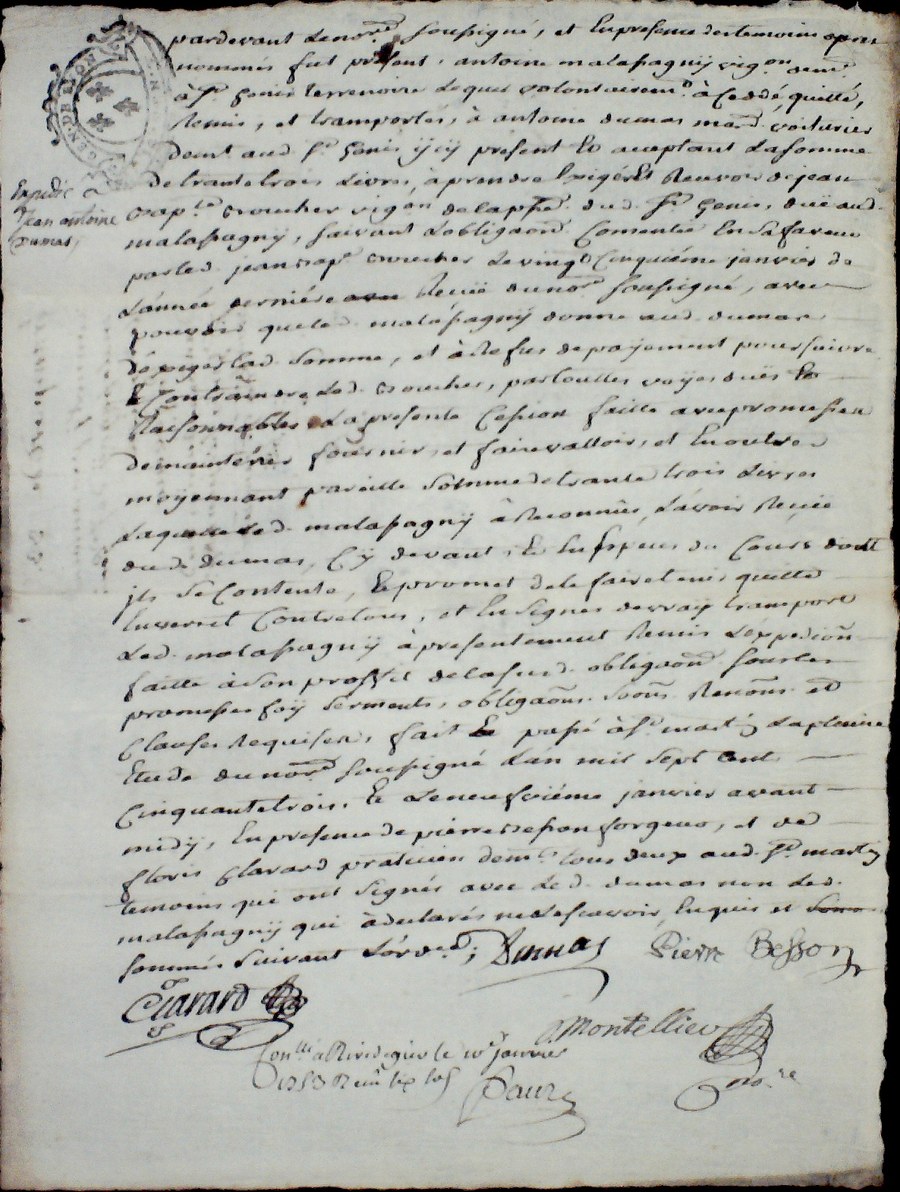 pardevant Le no.re soussigné, et En presence des temoins apres
nommés fut présent, antoine malassagnÿ vig.on dem.t
à S.t Genis terrenoire Lequel volontairem.t à Ceddé, quitté,
Remis, et transportés, à antoine dumas m.d voiturier
dem.t aud. S.t Genis jcÿ présent Et aceptant La somme
De trante trois Livres, à prendre Exiger Et Recevoir de jean
bap.te croucher vig.on de la p.sse dud. S.t Genis, due aud.
malassagnÿ, suivant Lobligaon Consentie En sa faveur
par led. jean bap.te croucher Le vingt Cinquiéme janvier de
L'année derniére Reçüe du no.re soussigné, avec
pouvoir que led. malassagnÿ donne aud. dumas
d'éxiger lad. somme, et à Refus de payement poursuivre
Et Contraindre Led. croucher, par touttes voÿes dües Et
Raisonnables La presente Cession faitte avec promesse
de maintenir fournir, et faire valloir, et En outre
moÿennant pareille somme de trante trois Livres
Laquelle Led. malassagnÿ à Reconnüe, L'avoir Reçüe
dud. dumas, Cÿ devant, Et En Especes du Cours dont
jls se Contente, Et promet de le faire tenir quitte
Envers et Contre tous, et En signes de vraÿ transport
Led. malassagnÿ à presentement Remis L'éxpedion
faitte à son proffit de la sus d. obligaon sous les
promesses foÿ serments, obligaons. soum. Renons. et
Clauses Requises, fait Et passé à S.t martin La plaine
Etude du no.re soussigné L'an mil sept Cent
Cinquante trois, Et Le neufviéme janvier avant
midÿ, En presence de pierre besson forgeur, et de
floris Clarard praticien dem.ts tous deux aud. S.t martin
temoins qui ont signés avec Led. dumas non Led.
malassagnÿ qui à declarés ne le scavoir, Enquis et
sommés suivant L'ord.ce;
Dumas Pierre Besson
Clarard
Montellier
no.re
Con.llé à Rivedegier le 10.e janvier
1753
Expedié
a
Jean antoine
Dumas,
GEN. DE LYON